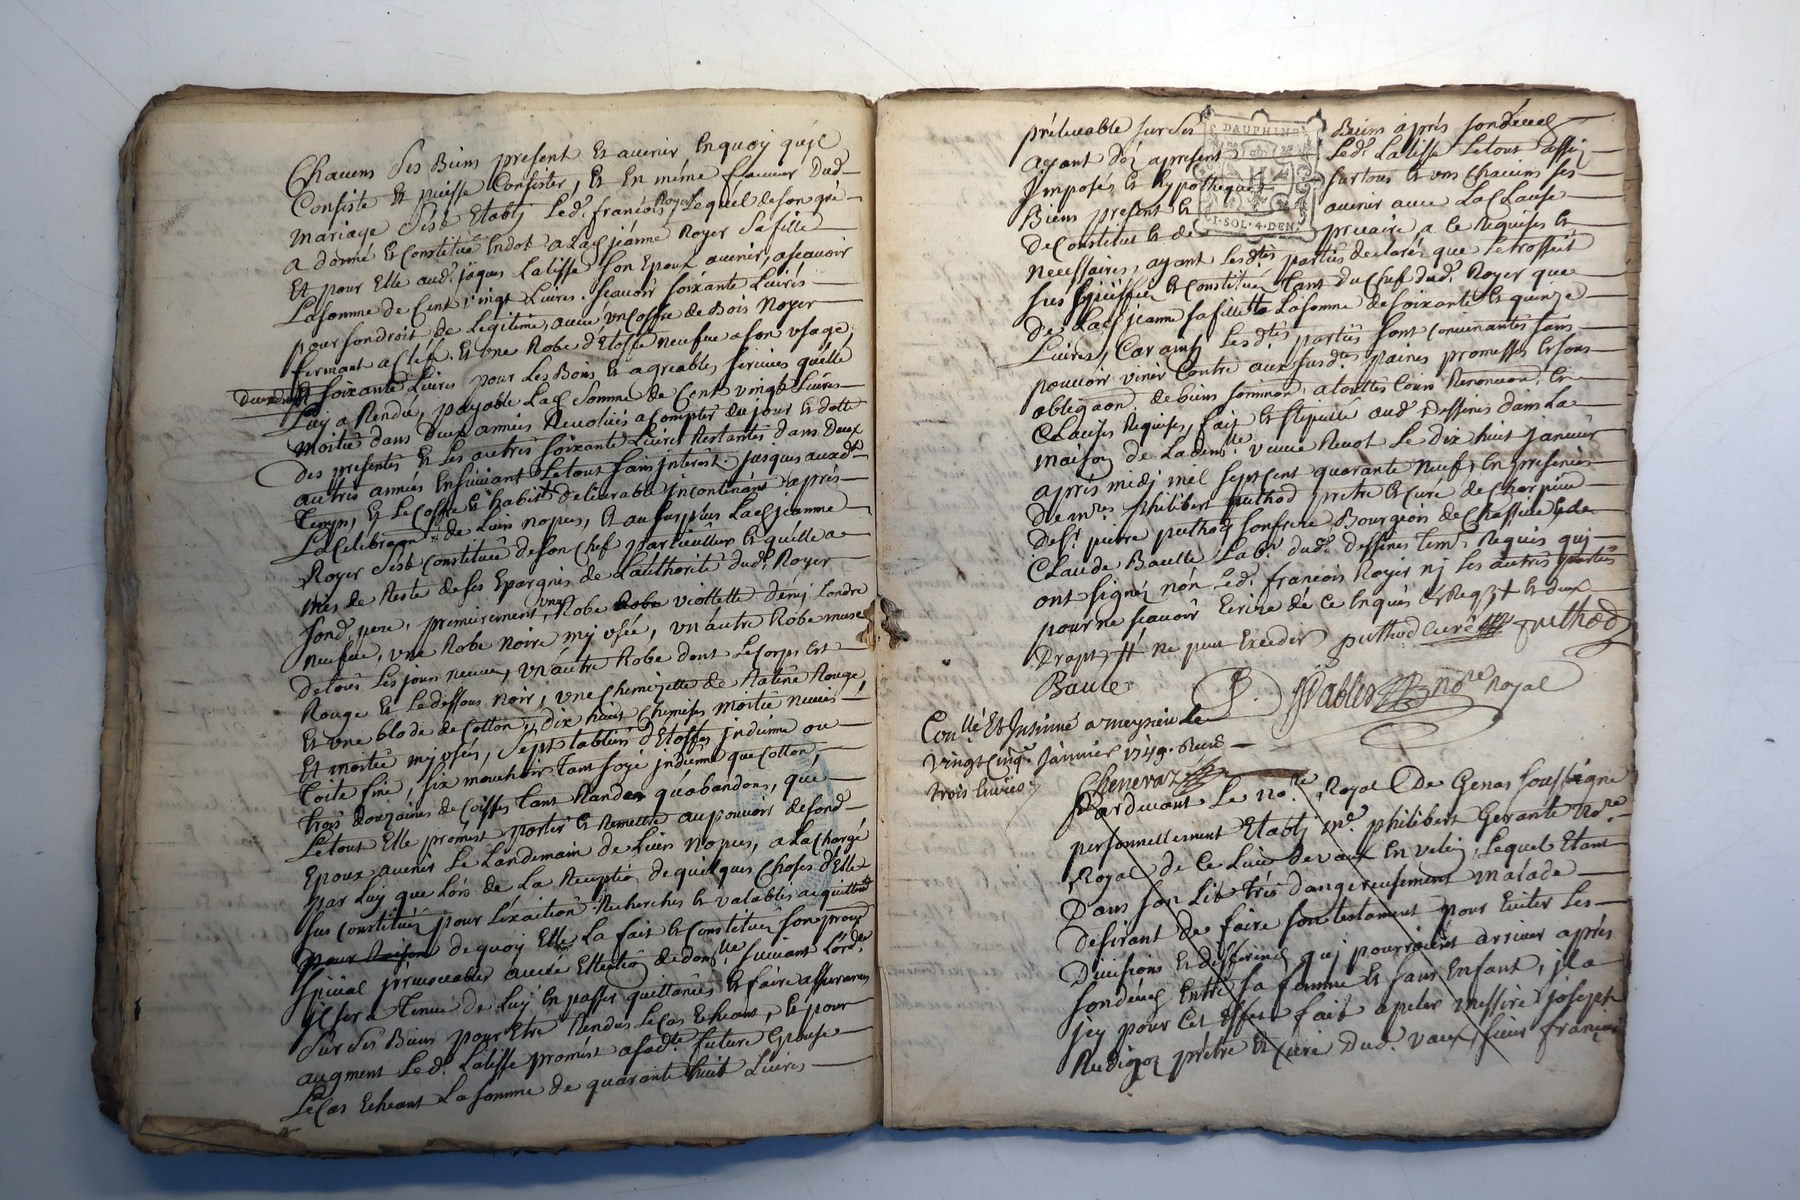 Chacuns Ses Biens present Et avenir Enquoy quil
Consiste Et puisse Consister, Et En même faveur Dud.
Mariage Sest Etably Led. françois Royer Lequel de son gré
a donné Et Constitué Endot a Lad. jeanne Royer Sa fille
Et pour Elle aud. jaques Latisse Son Epoux avenir, ascavoir
La somme de Cent vingt Livres. Scavoir Soixante Livres
pour son droit de Legitime, avec un Coffre de Bois Noyer
fermant a Clef. Et une Robe d'Etoffe neufve a son usage,
Et Soixante Livres pour Les Bons Et agreables Services quelle
Luy a Rendu, payable Lad. Somme de Cent vingt Livres
moitié dans deux années Revolües a Compter du jour Et datte
Des presentes Et Les autres Soixante Livres Restantes dans Deux
autres années Ensuivant Le tout Sans interest jusques auxd.
Temps, Et Le Coffre Et habit delivrable incontinant après
La Celebraon de Leurs nopces, Et au Surplus Lad. jeanne
Royer Sest Constituée de Son Chef particullier Et quelle a
mis de Reste de Ses Epargnes de L'authorité dud. Royer
Sond. pere, premierement, une Robe viollette demy Londre
neufve, une Robe Noire my usée, un autre Robe muse
de tous Les jours neuve, un autre Robe dont Le Corps Est
Rouge Et Le dessous noir, une Chemizette de Ratine Rouge
Et une blode de Cotton, Dix huit Chemises moitié neuves,
Et moitié my usées, Sept tabliers d'Etoffes indienne ou
Toile fine, Six mouchoirs Tant Soye indienne que Cotton,
trois douzaines de Coiffes tant Randes quabandons, que
Le tout Elle promest porter Et Remettre au pouvoir de Sond.
Epoux avenir Le Landemain de Leurs Nopces, a La Charge
par Luy que Lors de La Reception de quelques Choses d'Elle
Sus Constitués pour L'exaction Recherches Et valables acquittemt
de quoy Elle La fait Et Constitué Son proux
Special irrevocable avec Ellection de domlle Suivant Lord.
il Sera Tenue de Luy En passer quittances Et faire assurances
Sur Ses Biens pour Etre Rendus Le Cas Echeant, Et pour
augment Led. Latisse promest a Sad.te future Epouse
Le Cas Echeant La Somme de quarante huit Livres
prélevable sur Ses Biens après son décés
DAUPHINE
I·SOL·4·DEN
ayant des apresent Led. Latisse Le tout assis
Imposés Et hypothequés Sur tous Et uns Chacuns Ses
Biens present Et avenir avec La Clause
De Constitut Et de precaire a Ce Requises Et
necessaires, ayant Lesd.tes parties declarés que Le trossel
Sus Speciffié Et Constitué Tant du Chef dud. Royer que
de Lad. jeanne Sa fille La Somme de Soixante Et quinze
Livres, Car ainsy Lesd.tes parties Sont Convenantes Sans
pouvoir venir Contre aux Susd.tes paines promesses Et Sous
obligaon. de biens Soumion. a touttes Cours Renonciaon. Et
Clauses Requises, fait Et Stipullé aud. Dessines dans La
maison de La demlle veuve Revot Le Dix huit janvier
après midi mil Sept Cent quarante Neuf, En presences
De mres. philibert puthod pretre Et Curé de Charpieu
De Sr. pierre puthod Son frere Bourgeois de Chassieu
Claude Baulle Labr. dud. dessines tems. Requis qui
ont Signés non Led. françois Royer ny Les autres parties
pour ne Scavoir Ecrire de Ce Enquis Et Requis
ne peut Exceder puthod Curé puthod
Baule
P. Pablet Nore Royal
Conllé Et Insinué a meyzieu Le
vingt Cinq Janvier 1749. Recu
trois livres
Cheneraz
Pardevant Le Nore. Royal De Genas Soussigné
personnellement Etably me. philibert Gerante Nore.
Royal de Ce Lieu de vaux En velin Lequel Etant
Dans Son Lit très dangereusement malade
desirant de faire Son testament pour Eviter Les
Divisions Et differends quj pourroient arriver après
Son décés Entre Sa femme Et Sans Enfant, jl a
jcy pour Cet Effet fait apeler messire joseph
Rudigoz prêtre Et Curé Dud. vaux, Sieur françois